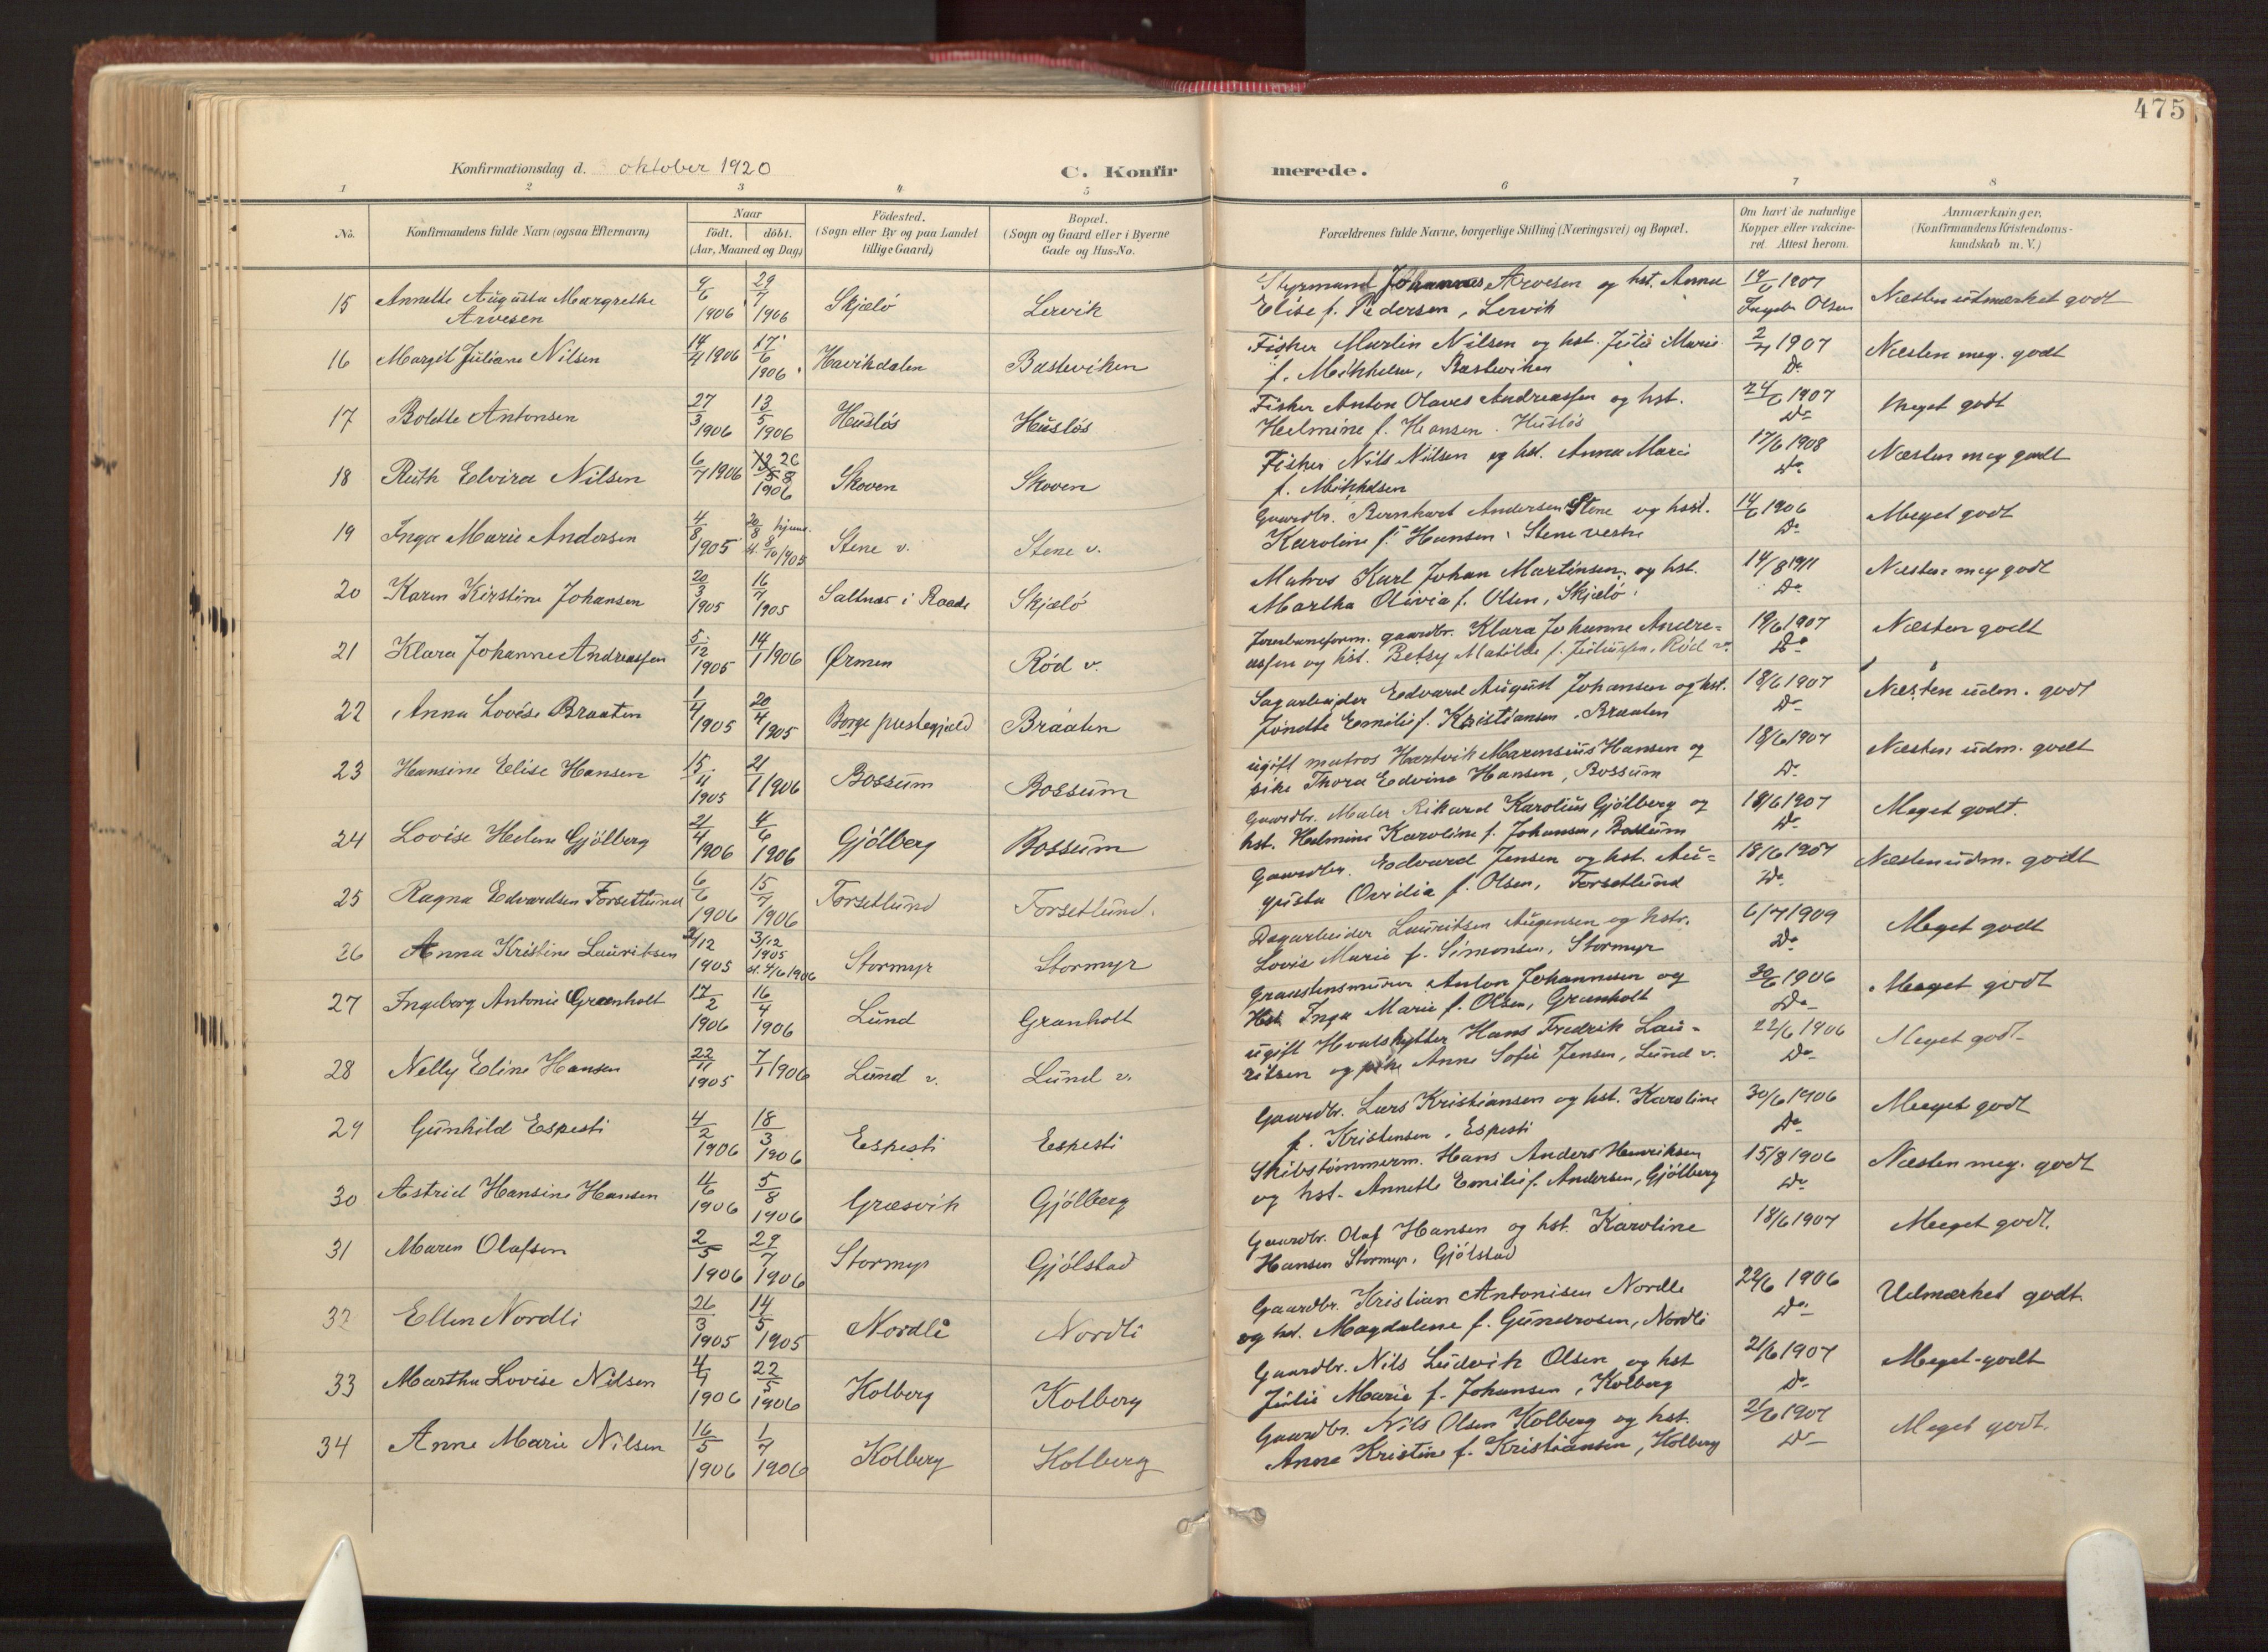 475
Konfirmationsdag d. 3 oktober 1920
C. Konfirmerede.
1 2 3 4 5 6 7 8
No.
Konfirmandens fulde Navn (ogsaa Efternavn)
Naar
födt. döbt.
(Aar, Maaned og Dag)
Födested.
(Sogn eller By og paa Landet
tillige Gaard)
Bopæl.
(Sogn og Gaard eller i Byerne
Gade og Hus-No.
Forældrenes fulde Navne, borgerlige Stilling (Næringsvei) og Bopæl.
Om havt de naturlige
Kopper eller vakcine-
ret. Attest herom.
Anmærkninger.
(Konfirmandens Kristendoms-
kundskab m. V.)
15 Annette Augusta Margrethe Arvesen 9/6 1906 29/7 1906 Skjælö Lervik
Styrmand Johannes Arvesen og hst. Anna
Elise f. Pedersen, Lervik
19/6 1907 Olsen Næsten utmærket godt
16 Margit Juliane Nilsen 14/4 1906 17/6 1906 Havikdalen Basteviken
Fisker Martin Nilsen og hst. Julie Marie
f. Mikkelsen, Basteviken
2/7 1907 Do Næsten meg. godt
17 Bolette Antonsen 27/3 1906 13/5 1906 Husløs Husløs
Fisker Anton Olaves Andreassen og hst.
Helmine f. Hansen. Husløs
24/6 1907 Do Meget godt
18 Ruth Elvira Nilsen 6/7 1906 26/8 1906 Skoven Skoven
Fisker Nils Nilsen og hst. Anna Marie
f. Mikkelsen
17/6 1908 Do Næsten meg godt
19 Inga Marie Andersen 4/8 1905 20/8 hjem. st. 8/10 1905 Stene v. Stene v.
Gaardbr. Bernhart Andersen Stene og hst.
Karoline f. Hansen, Stene vestre
14/6 1906 Do Meget godt
20 Karen Kirstine Johansen 20/3 1905 16/7 1905 Saltnæs i Raade Skjælö
Matros Karl Johan Martinsen og hst.
Martha Olivia f. Olsen, Skjælö.
14/8 1911 Do Næsten meg godt
21 Klara Johanne Andreassen 5/12 1905 14/1 1906 Ørmen Röd v.
Jernbaneform. gaardbr. Klara Johanne Andre=
assen og hst. Betsy Matilde f. Juliussen, Röd v.
19/6 1907 Do Næsten godt
22 Anna Lovise Braaten 1/4 1905 20/4 1905 Borge prestegjæld Braaten
Sagarbeider Edvard August Johansen og hst.
Emilie f. Kristiansen, Braaten
18/6 1907 Do Næsten udm. godt
23 Hansine Elise Hansen 15/11 1905 21/1 1906 Bossum Bossum
ugift matros Hartvik Marensius Hansen og
pike Thora Edvine Hansen, Bossum
18/6 1907 Do Næsten udm. godt
24 Lovise Helene Gjölberg 21/4 1906 4/6 1906 Gjölberg Bossum
Gaardbr. Maler Rikard Karolius Gjölberg og
hst. Helmine Karoline f. Johansen, Bossum
18/6 1907 Do Meget godt.
25 Ragna Edvardsen Forsetlund 6/6 1906 15/7 1906 Forsetlund Forsetlund.
Gaardbr. Edvard Jensen og hst. Au=
gusta Ovidia f. Olsen, Forsetlund
18/6 1907 Do Næsten udm. godt
26 Anna Kristine Lauritsen 2/12 1905 3/12 1905 st. 4/6 1906 Stormyr Stormyr
Dagarbeider Lauritsen Augensen og hstr.
Lovise Marie f. Simonsen, Stormyr
6/7 1909 Do Meget godt
27 Ingeborg Antonie Grænholt 17/2 1906 16/4 1906 Lund Granholt
Graastensmurer Anton Johannesen og
Hst. Inga Marie f. Olsen, Grønholt
30/6 1906 Do Meget godt
28 Nelly Eline Hansen 22/11 1905 7/1 1906 Lund v. Lund v.
ugift Hvalskytter Hans Fredrik Lau-
ritsen og pike Anne Sofie Jensen, Lund v.
22/6 1906 Do Meget godt
29 Gunhild Espesti 4/2 1906 18/3 1906 Espesti Espesti
Gaardbr. Lars Kristiansen og hst. Karoline
f. Kristensen, Espesti
30/6 1906 Do Meget godt
30 Astrid Hansine Hansen 4/6 1906 5/8 1906 Græsvik Gjölberg
Skibstömmerm. Hans Anders Henriksen
og hst. Annette Emilie f. Andersen, Gjölberg
15/8 1906 Do Næsten meg. godt
31 Maren Olafsen 2/5 1906 29/7 1906 Stormyr Gjölstad
Gaardbr. Olaf Hansen og hst. Karoline
Hansen Stormyr, Gjölstad
18/6 1907 Meget godt.
32 Ellen Nordli 26/3 1905 14/5 1905 Nordli Nordli
Gaardbr. Kristian Antonisen Nordli
og hst. Magdalene f. Gundrosen, Nordli
22/6 1906 Do Udmærket godt
33 Martha Lovise Nilsen 4/1 1906 22/5 1906 Kolberg Kolberg
Gaardbr. Nils Ludvik Olsen og hst
Julie Marie f. Johansen, Kolberg
21/6 1907 Do Meget godt
34 Anne Marie Nilsen 16/5 1906 1/7 1906 Kolberg Kolberg
Gaardbr. Nils Olsen Kolberg og hst.
Anne Kristine f. Kristiansen, Kolberg
2/6 1907 Do Meget godt.